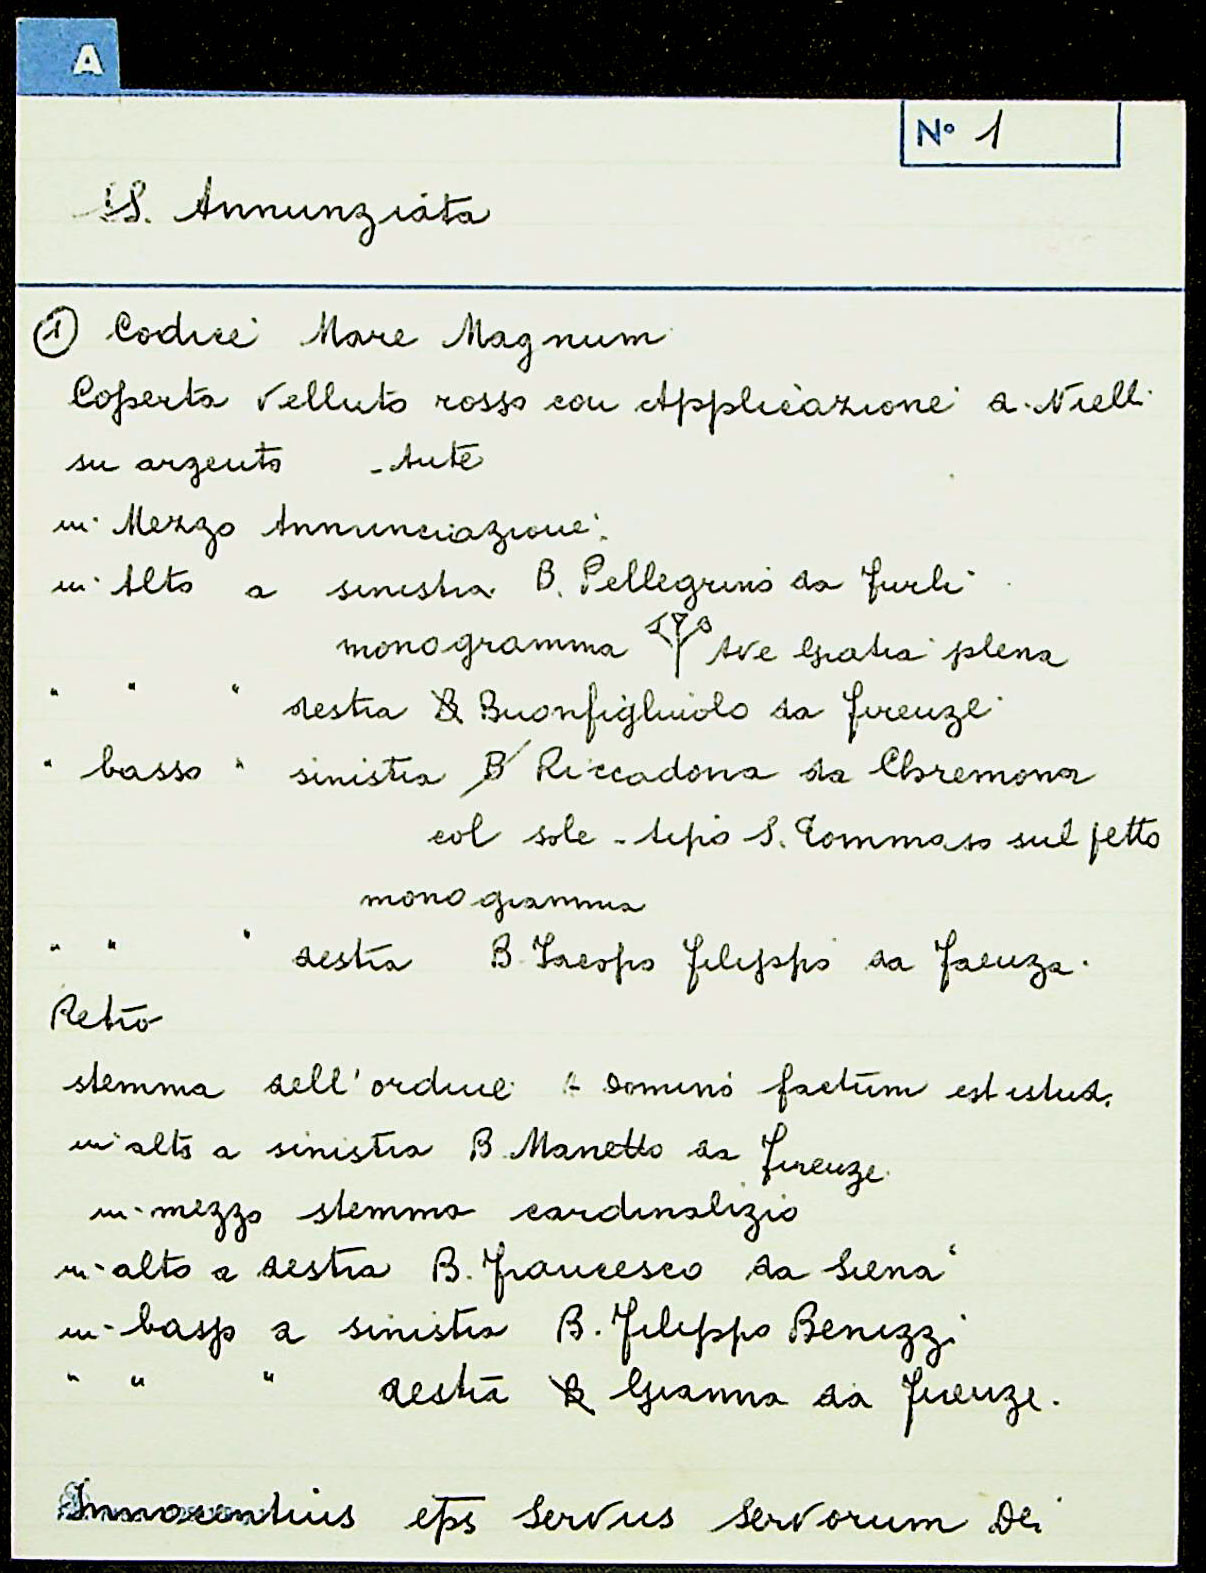 A
N° 1
SS. Annunziata
① Codice Mare Magnum
Coperta velluto rosso con Applicazione a Nielli
su argento - Ante
in Mezzo Annunciazione.
in Alto a sinistra B. Pellegrino da Furli
monogramma Ave Gratia plena
" " " destra B Buonfigliuolo da Firenze
" basso " sinistra B Riccadona da Chremona
col sole - tipo S. Tommaso sul petto
monogramma
" " " destra B. Jacopo Filippo da Faenza.
Retro
stemma dell'ordine A domino factum est istud.
in alto a sinistra B. Manetto da Firenze
in mezzo stemma cardinalizio
in alto a destra B. Francesco da Siena
in basso a sinistra B. Filippo Benizzi
" " " destra B Gianna da Firenze.
Innocentius eps Servus Servorum Dei